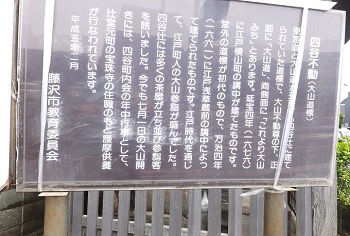 四谷不動（大山道標）
東海道と大山道が交差する四谷辻に建て
られていた道標で、大山不動尊の下、正
面に「大山道」、両側面に「これより大山
みち」とあります。延宝四年（一六七六）
に江戸横山町の講中が建てたものです。
堂外の道標が初代のもので、万治四年
（一六六一）に江戸浅草蔵前の講中によっ
て建てられたものです。江戸時代を通じ
て、江戸町人の大山参詣が盛んでした。
四谷辻には多くの茶屋が立ち並び参詣客
を誘いました。今でも七月一日の大山開
きには、四谷町内会の年中行事として、
辻堂元町の宝珠寺の住職の司と護摩供養
が行なわれています。
平成五年二月
藤沢市教育委員会